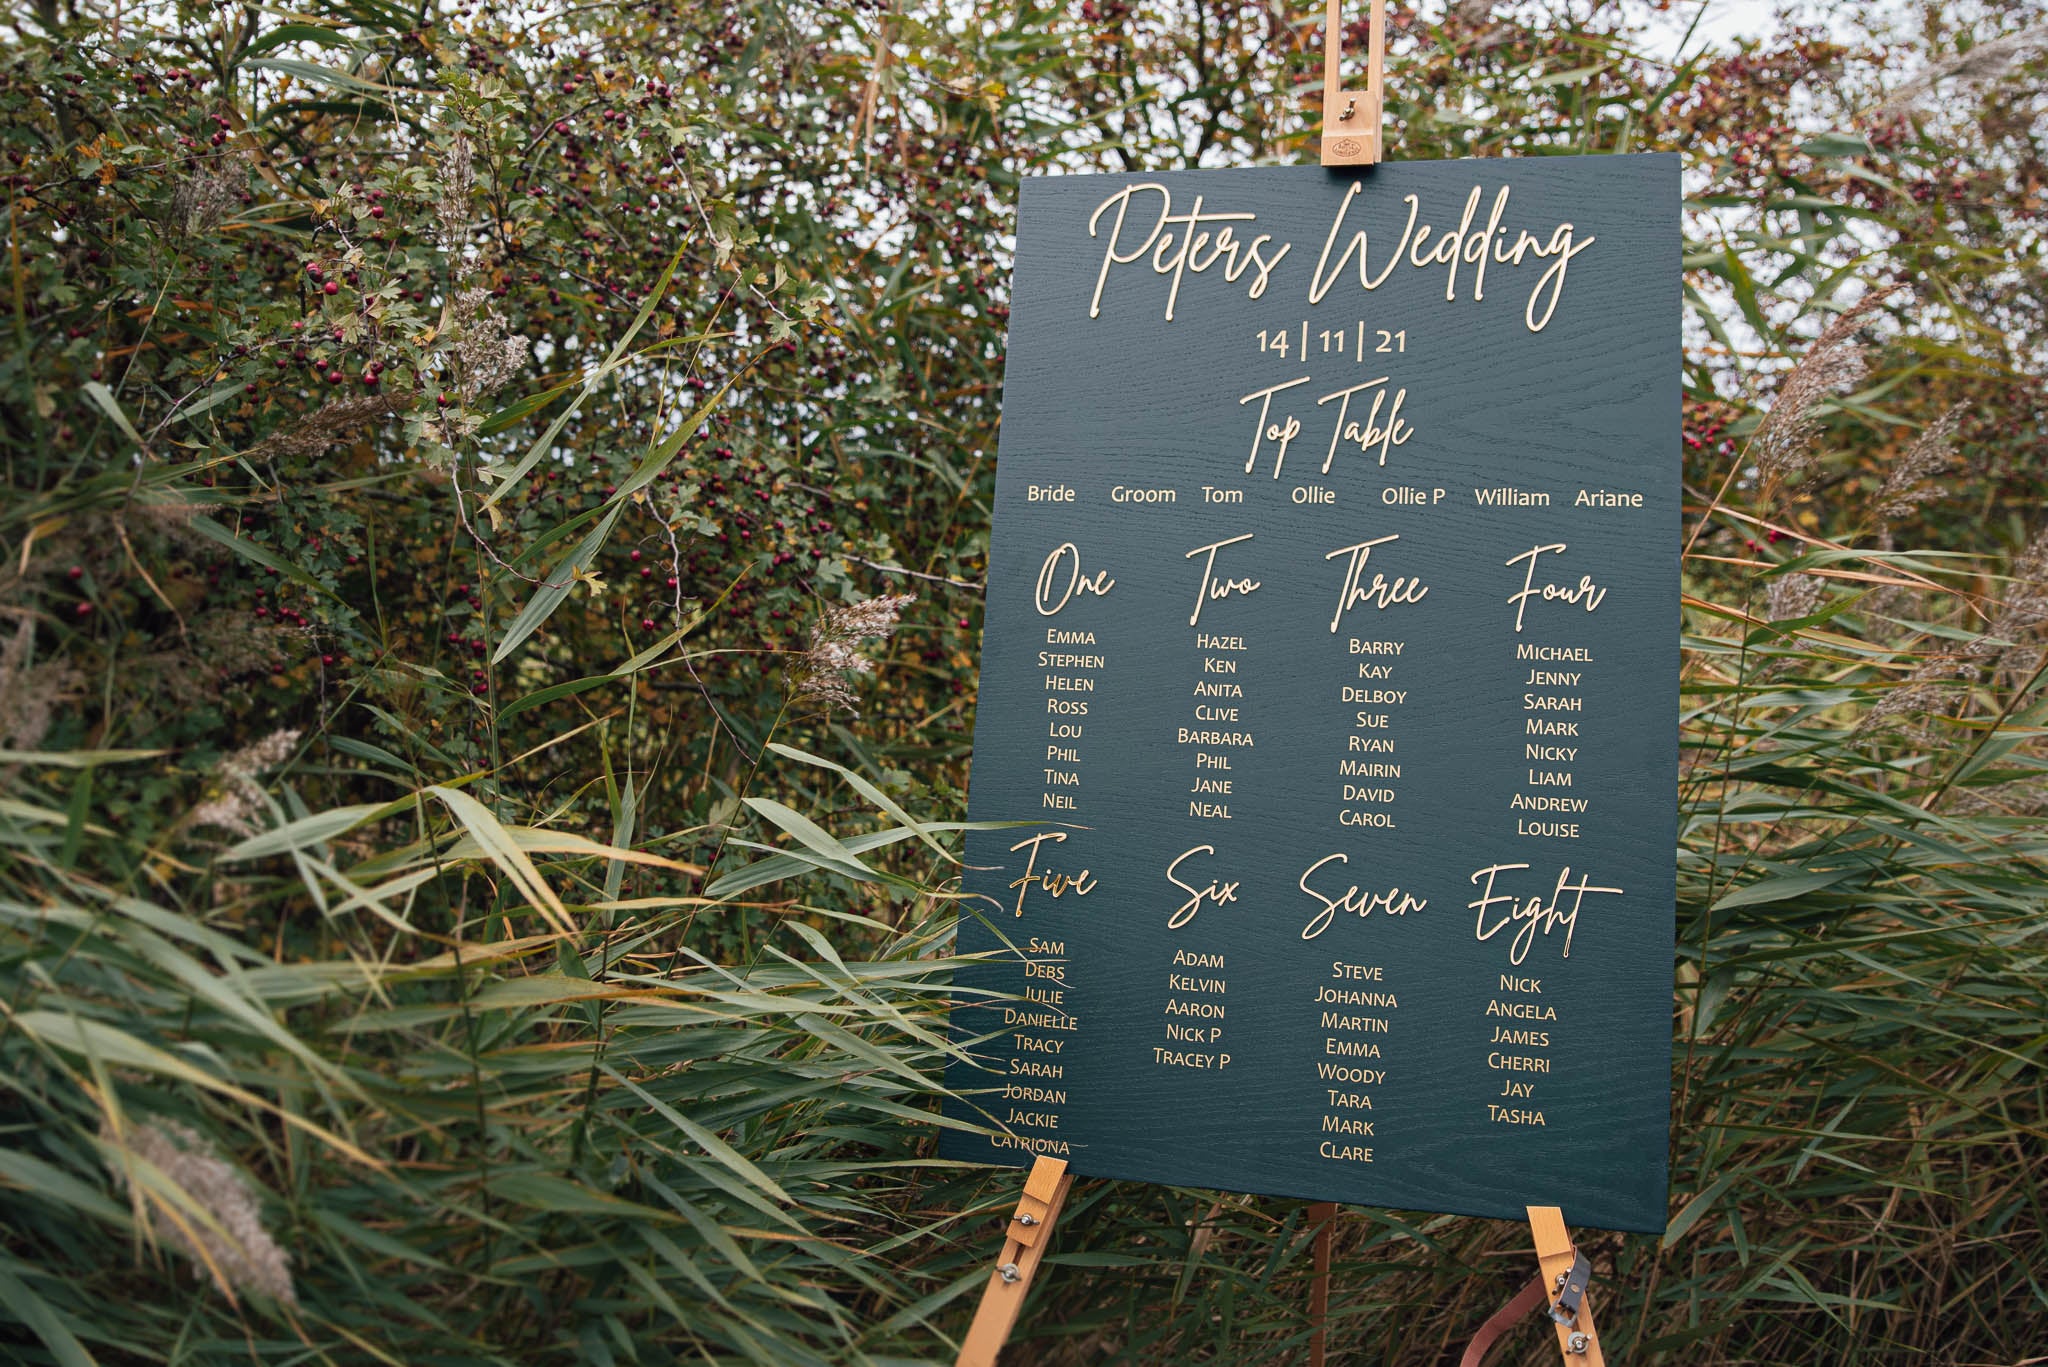 Peters Wedding
14 | 11 | 21
Top Table
Bride Groom Tom Ollie Ollie P William Ariane
One
EMMA
STEPHEN
HELEN
ROSS
LOU
PHIL
TINA
NEIL
Two
HAZEL
KEN
ANITA
CLIVE
BARBARA
PHIL
JANE
NEAL
Three
BARRY
KAY
DELBOY
SUE
RYAN
MAIRIN
DAVID
CAROL
Four
MICHAEL
JENNY
SARAH
MARK
NICKY
LIAM
ANDREW
LOUISE
Five
SAM
DEBS
JULIE
DANIELLE
TRACY
SARAH
JORDAN
JACKIE
CATRIONA
Six
ADAM
KELVIN
AARON
NICK P
TRACEY P
Seven
STEVE
JOHANNA
MARTIN
EMMA
WOODY
TARA
MARK
CLARE
Eight
NICK
ANGELA
JAMES
CHERRI
JAY
TASHA